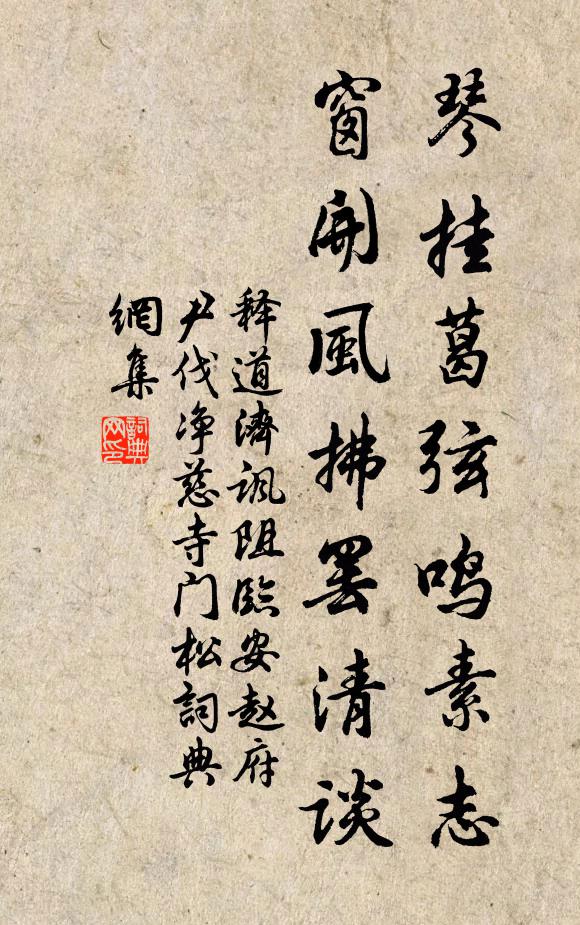 琴挂葛弦鸣素志
窗开風拂罢清谈
释道濟讽阻臨安赵府
尹伐净慈寺门松詞典
網集
詞典網印